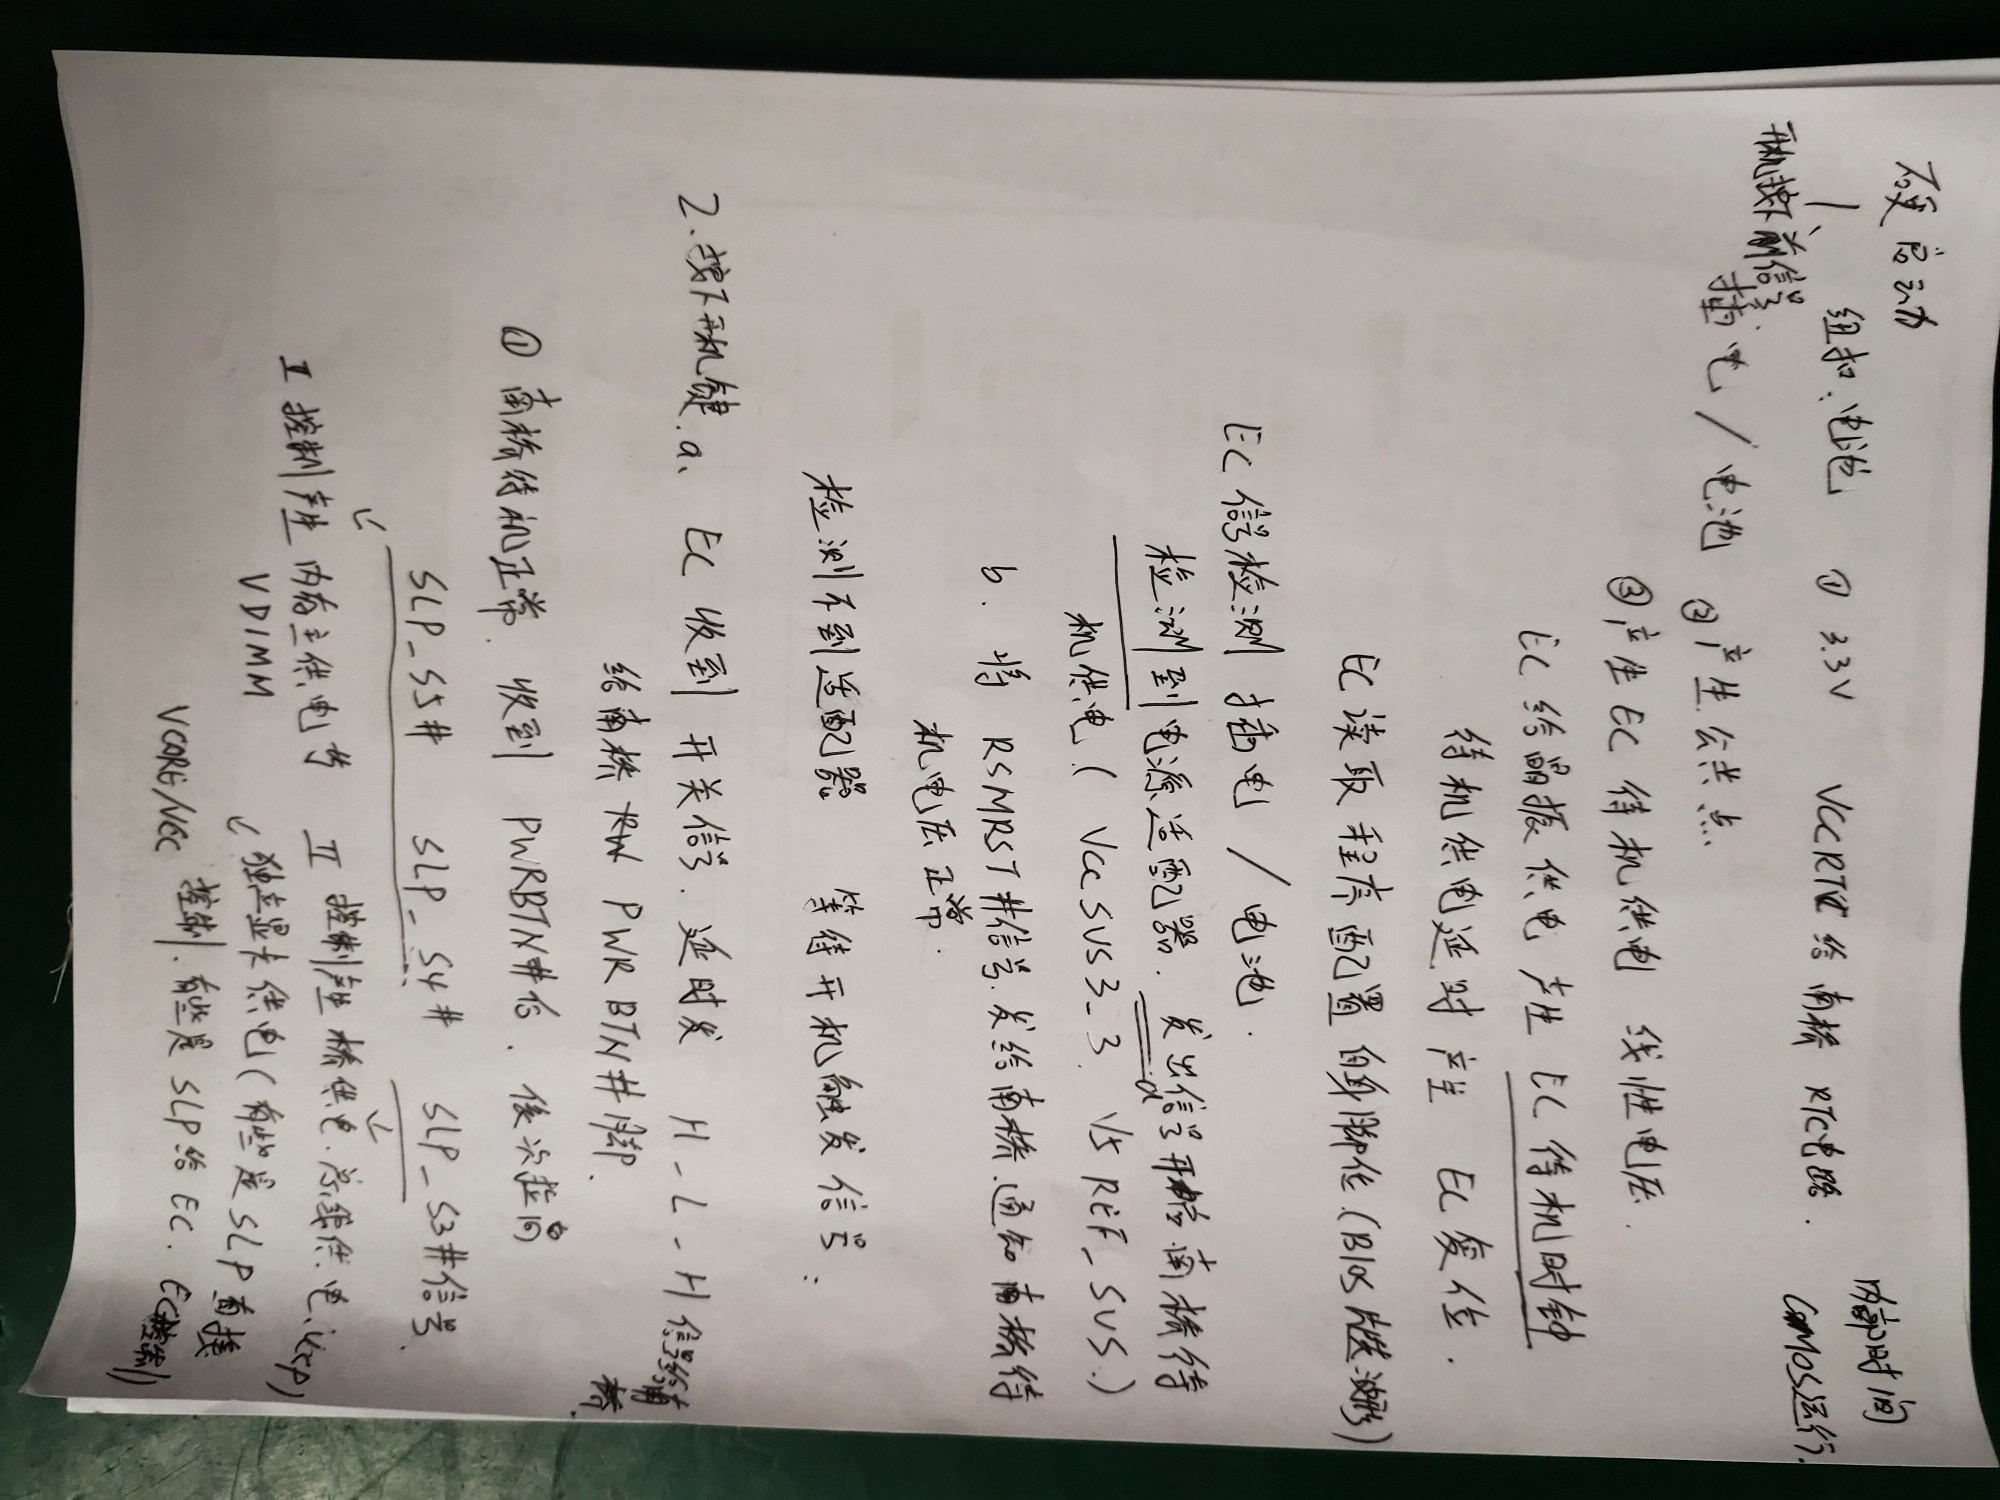 硬启动
内部时间
1 纽扣电池 ① 3.3V VCCRTC 给南桥 RTC电路.
CMOS运行.
开机按下前信号.
插电/电池 ② 产生公共点.
③ 产生EC待机供电 线性电压.
EC给晶振供电产生EC待机时钟
待机供电延时产生 EC复位.
EC读取程序配置自身脚位.(BIOS
EC信号检测插电/电池.
检测到电源适配器. 发出信号开给南桥待
a
机供电.( VccSUS3_3. V5REF_SUS.)
b. 将 RSMRST#信号.发给南桥.通知南桥待
机电压正常.
检测不到适配器 等待开机触发信号:
2.按下开机键.a、EC收到开关信号.延时发 H-L-H信号给南
桥.
给南桥 PWRBTN#脚.
① 南桥待机正常.收到 PWRBTN#后.依次拉高
SLP_S5# SLP_S4# SLP_S3#信号.
I 控制产生内存主供电等 II 控制产生桥供电.总线供电.(VccP)
VDIMM 独立显卡供电(有些是SLP直接
VCORE/VCC 控制.有些是SLP给EC.EC控制)